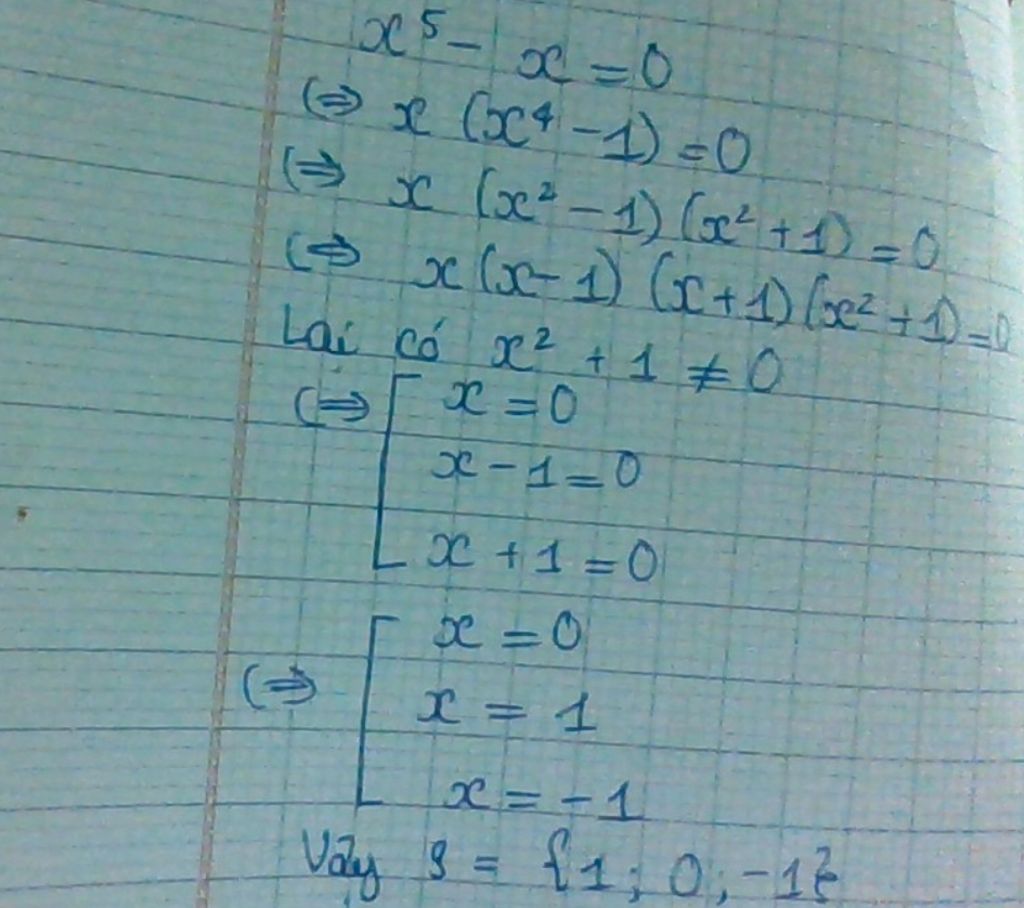 x⁵ - x = 0
(=> x (x⁴ - 1) = 0
(=> x (x² - 1) (x² + 1) = 0
(=> x (x - 1) (x + 1) (x² + 1) = 0
Lại có x² + 1 ≠ 0
(=> [ x = 0
x - 1 = 0
x + 1 = 0
(=> [ x = 0
x = 1
x = -1
Vậy S = {1; 0; -1}